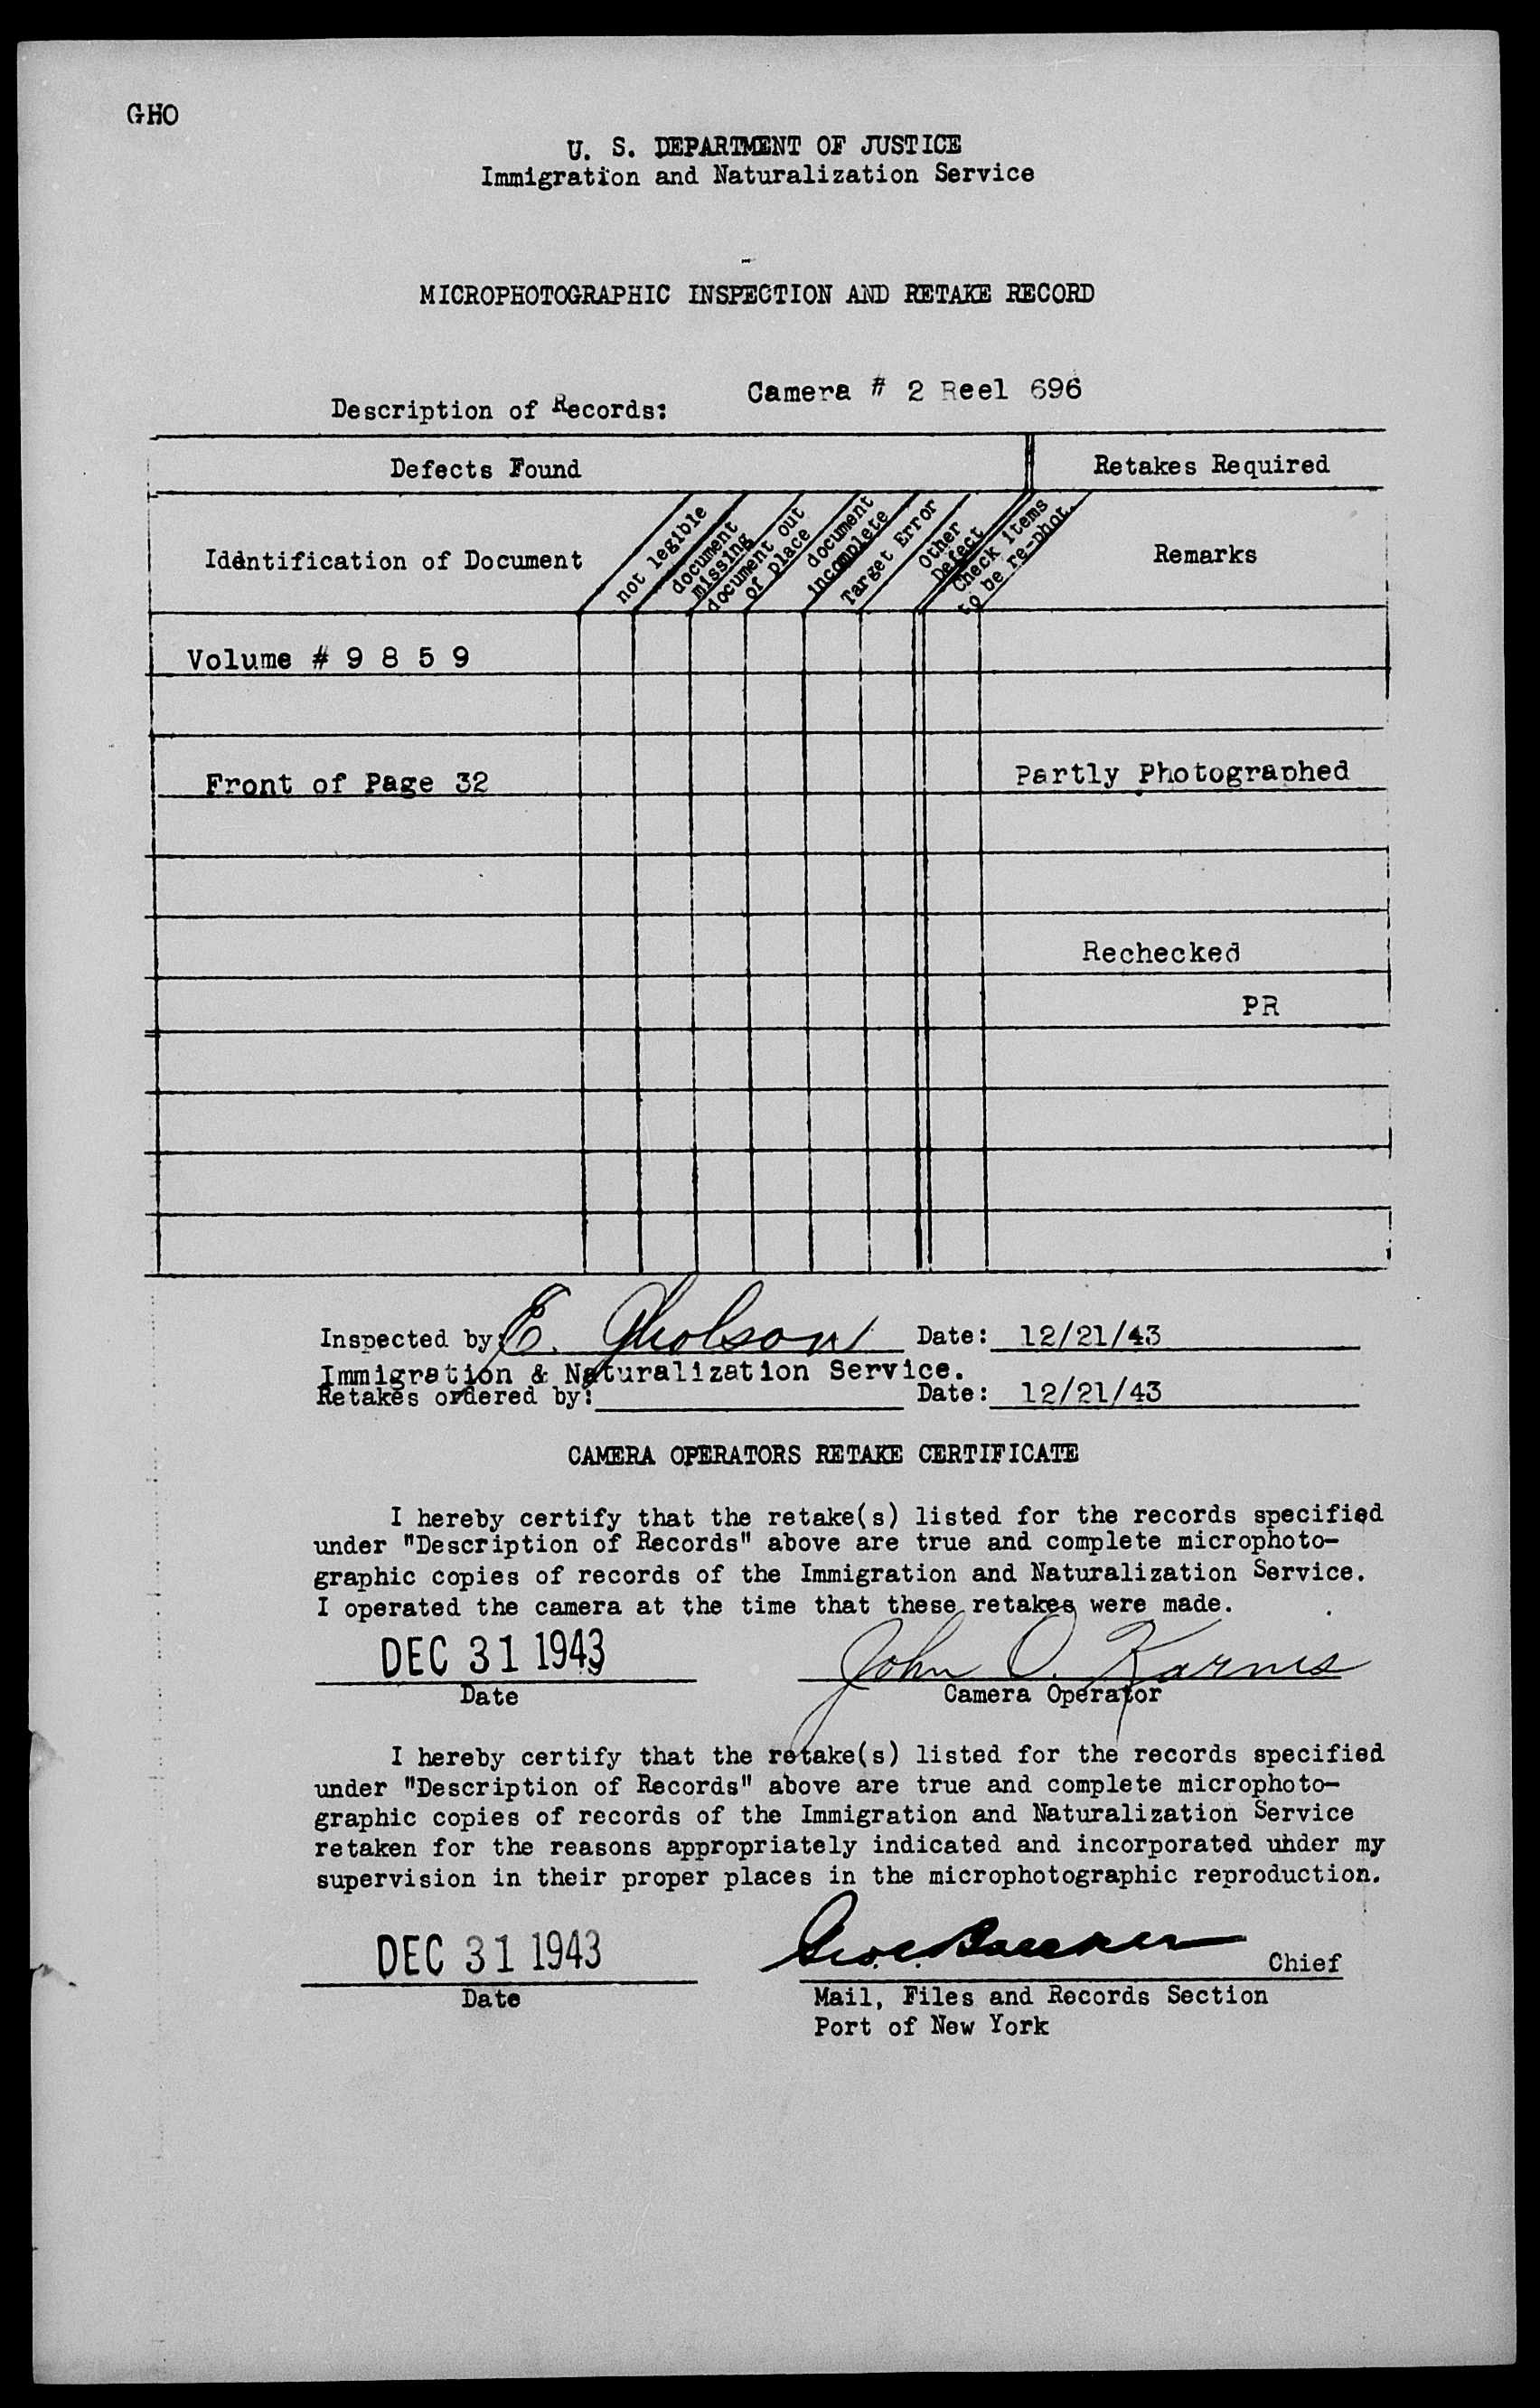 GHO
U. S. DEPARTMENT OF JUSTICE
Immigration and Naturalization Service
MICROPHOTOGRAPHIC INSPECTION AND RETAKE RECORD
Camera # 2 Reel 696
Description of Records:
Defects Found
Retakes Required
Identification of Document
not legible
document missing
document out of place
document incomplete
Target Error
Other Defect
Check items to be re-phot.
Remarks
Volume # 9 8 5 9
Front of Page 32
Partly Photographed
Rechecked
PR
Inspected by: E. Gholson Date: 12/21/43
Immigration & Naturalization Service.
Retakes ordered by: Date: 12/21/43
CAMERA OPERATORS RETAKE CERTIFICATE
I hereby certify that the retake(s) listed for the records specified
under "Description of Records" above are true and complete microphoto-
graphic copies of records of the Immigration and Naturalization Service.
I operated the camera at the time that these retakes were made.
DEC 31 1943 John O. Karnes
Date Camera Operator
I hereby certify that the retake(s) listed for the records specified
under "Description of Records" above are true and complete microphoto-
graphic copies of records of the Immigration and Naturalization Service
retaken for the reasons appropriately indicated and incorporated under my
supervision in their proper places in the microphotographic reproduction.
DEC 31 1943 Chief
Date Mail, Files and Records Section
Port of New York